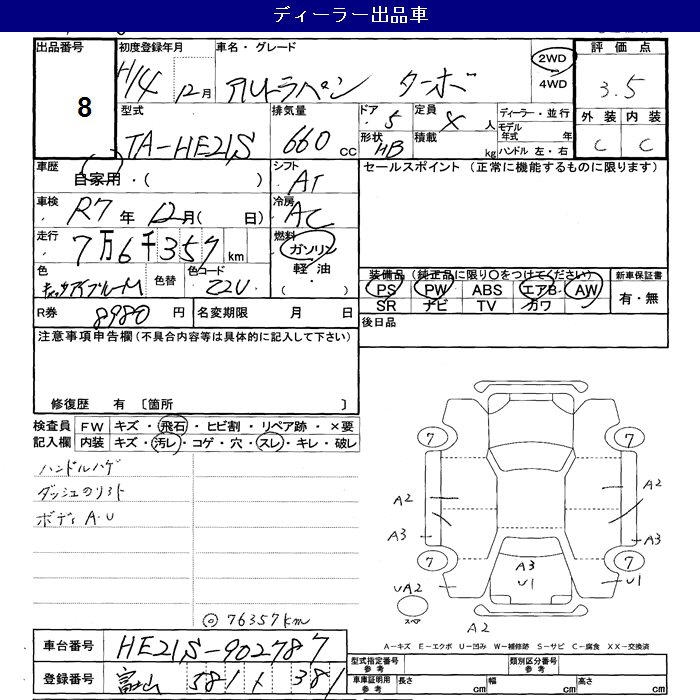 ディーラー出品車
出品番号 初度登録年月 車名・グレード 2WD 評価点
8 H14 12月 アルトラパン ターボ 4WD 3.5
型式 排気量 ドア 定員 ディーラー・並行 外装 内装
TA-HE21S 660 CC 5 人 モデル年式 年 C C
形状 HB 積載 kg ハンドル 左・右
車歴 自家用・( ) シフト AT セールスポイント (正常に機能するものに限ります)
車検 R7 年 12月( 日) 冷房 AC
走行 7万6千357 km 燃料 ガソリン
軽油
・( )
色 色替 色コード Z2U 装備品 (純正品に限り○をつけてください) 新車保証書
PS PW ABS エアB AW 有・無
SR ナビ TV カワ
R券 8980 円 名変期限 月 日 後日品
注意事項申告欄 (不具合内容等は具体的に記入して下さい)
修復歴 有 〔箇所 〕
検査員 FW キズ・飛石・ヒビ割・リペア跡・×要
記入欄 内装 キズ・汚レ・コゲ・穴・スレ・キレ・破レ
ハンドルハゲ
ダッシュのリフト
ボディ A.U
7 7
A2 A2
A3 A3
7 7
A3
UA2 U1 U1
スペア
A2
◎ 76357km
A-キズ E-エクボ U-凹み W-補修跡 S-サビ C-腐食 XX-交換済
車台番号 HE21S-902787
型式指定番号 参考 類別区分番号 参考
登録番号 富山 581 381
車庫証明用 参考 長さ cm 幅 cm 高さ cm